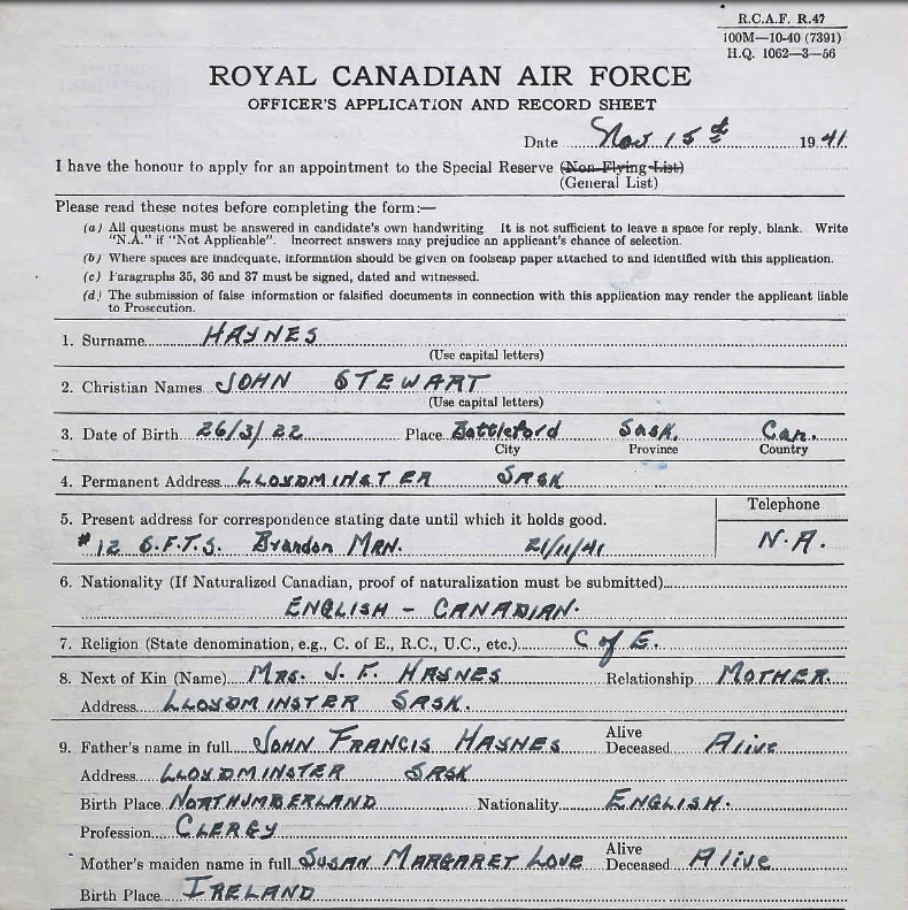 R.C.A.F. R.47
100M—10-40 (7391)
H.Q. 1062—3—56
ROYAL CANADIAN AIR FORCE
OFFICER'S APPLICATION AND RECORD SHEET
Date Nov 15th 1941
I have the honour to apply for an appointment to the Special Reserve (Non-Flying List)
(General List)
Please read these notes before completing the form:—
(a) All questions must be answered in candidate's own handwriting It is not sufficient to leave a space for reply, blank. Write
"N.A." if "Not Applicable". Incorrect answers may prejudice an applicant's chance of selection.
(b) Where spaces are inadequate, information should be given on foolscap paper attached to and identified with this application.
(c) Paragraphs 35, 36 and 37 must be signed, dated and witnessed.
(d) The submission of false information or falsified documents in connection with this application may render the applicant liable
to Prosecution.
1. Surname HAYNES
(Use capital letters)
2. Christian Names JOHN STEWART
(Use capital letters)
3. Date of Birth 26/3/22 Place Battleford Sask. Can.
City Province Country
4. Permanent Address LLOYDMINSTER SASK
Telephone
5. Present address for correspondence stating date until which it holds good.
#12 S.F.T.S. Brandon MAN. 21/11/41 N.A.
6. Nationality (If Naturalized Canadian, proof of naturalization must be submitted)
ENGLISH - CANADIAN.
7. Religion (State denomination, e.g., C. of E., R.C., U.C., etc.) C of E.
8. Next of Kin (Name) MRS. J. F. HAYNES Relationship MOTHER.
Address LLOYDMINSTER SASK.
9. Father's name in full JOHN FRANCIS HAYNES Alive Deceased Alive
Address LLOYDMINSTER SASK
Birth Place NORTHUMBERLAND Nationality ENGLISH.
Profession CLERGY
Mother's maiden name in full SUSAN MARGARET LOVE Alive Deceased Alive
Birth Place IRELAND